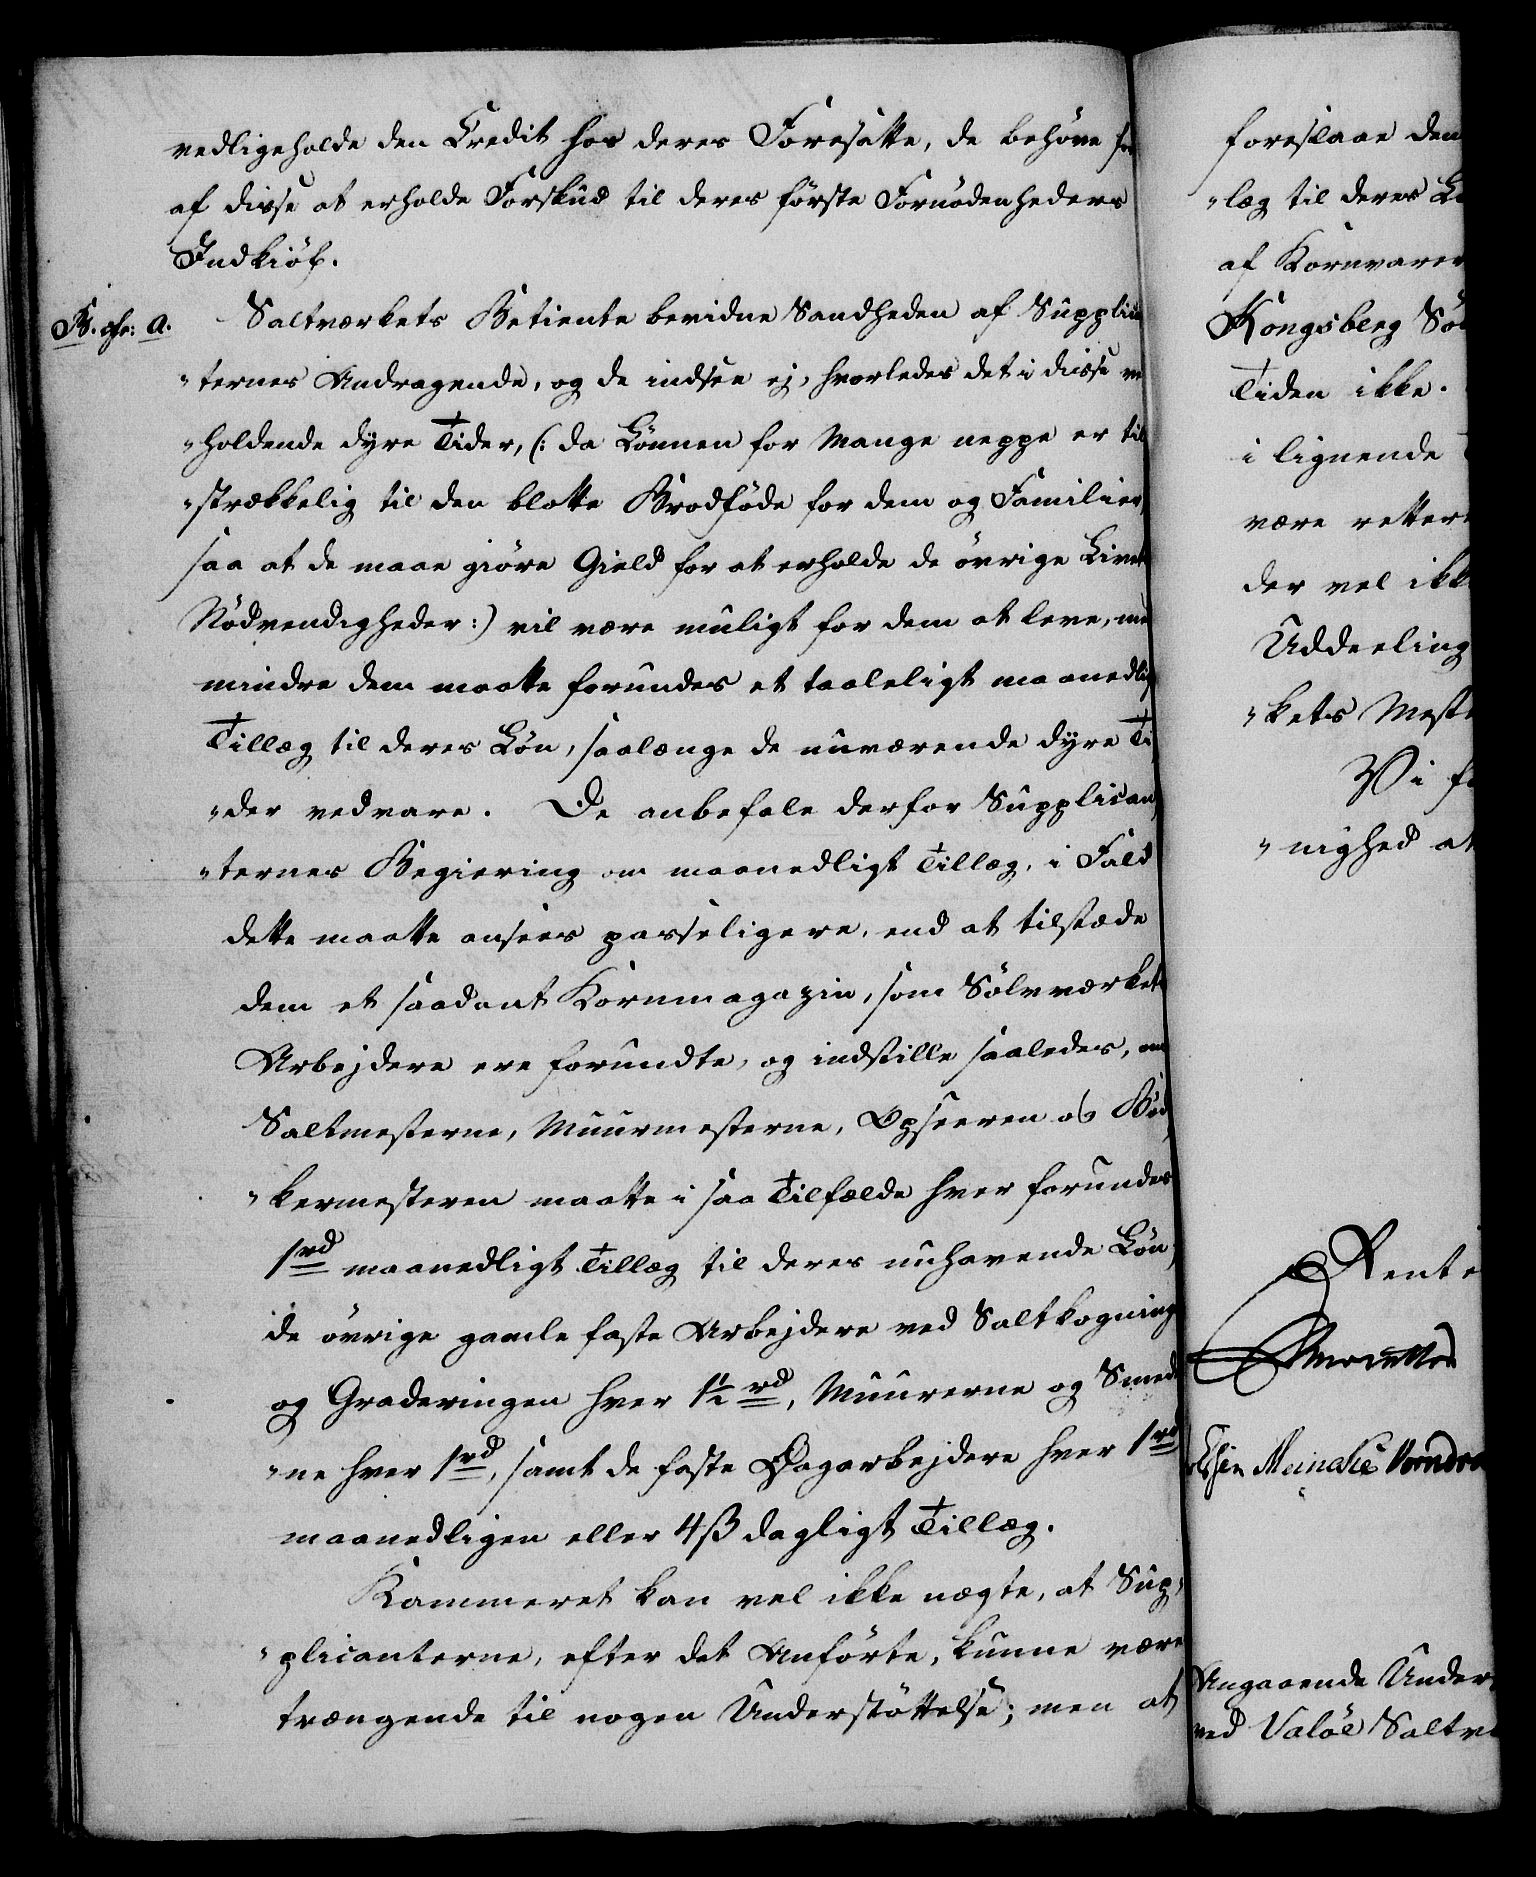 vedligeholde den Credit hos deres Foresatte, de behöve for
af disse at erholde Forskud til deres förste Fornödenheders
Indkiöb.
B. cfr: a.
Saltværkets Betiente bevidne Sandheden af Supplican
"ternes Andragende, og de indsee ej, hvorledes det i disse ved
"holdende dyre Tider, (: da Lönnen for Mange neppe er til
"strækkelig til den blotte Brödföde for dem og Familier,
saa at de maae giöre Gield for at erholde de övrige Livets
Nödvendigheder:) vil være muligt for dem at leve, med
mindre dem maatte forundes et taaleligt maanedlig
Tillæg til deres Lön, saalænge de nuværende dyre Ti
"der vedvare. De anbefale derfor Supplican
"ternes Begiering om maanedligt Tillæg, i Fald
dette maatte ansees passeligere, end at tilstæde
dem et saadant Kornmagazin, som Sölvværkets
Arbejdere ere forundte, og indstille saaledes, om
Saltmesterne, Muurmesterne, Opseeren og Böd
"kermesteren maatte i saa Tilfælde hver forundes
1rd maanedligt Tillæg til deres nuhavende Lön,
de övrige gamle faste Arbejdere ved Saltkogning
og Graderingen hver 1½ rd, Muurerne og Smede
"ne hver 1rd, samt de faste Dagarbejdere hver 1rd
maanedligen eller 4ß dagligt Tillæg.
Kammeret kan vel ikke nægte, at Sup"
"plicanterne, efter det Anförte, kunne være
trængende til nogen Understöttelse; men at
foreslaae dem
"læg til deres Lö
af Kornvarer
Kongsberg Söl
Tiden ikke.
i lignende
være rettere
der vel ikke
Uddeeling
"kets Meste
Vi f
"nighed at
Rente
Angaaende Under
ved Valöe Saltvæ